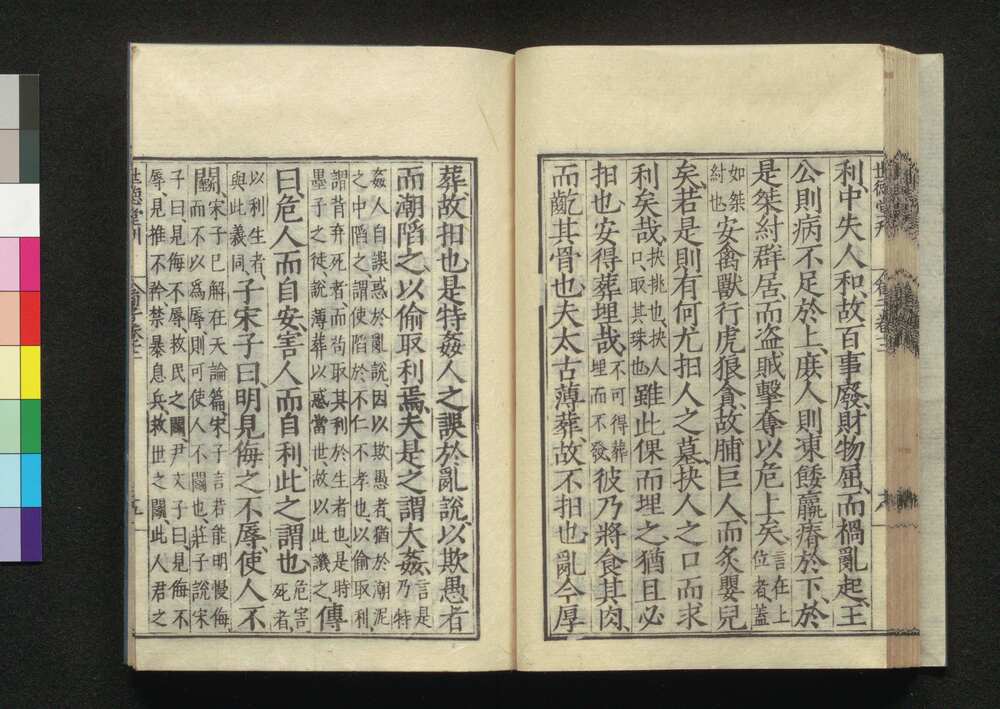 利中失人和故百事廢財物屈而禍亂起王
公則病不足於上庶人則凍餧羸瘠於下於
是桀紂群居而盜賊擊奪以危上矣言在上位者蓋
如桀紂也安禽獸行虎狼貪故脯巨人而炙嬰兒
矣若是則有何尤抇人之墓抉人之口而求
利矣哉抉挑也抉人口取其珠也雖此倮而埋之猶且必
抇也安得葬埋哉不可得葬埋而不發彼乃將食其肉
而齕其骨也夫太古薄葬故不抇也亂今厚
葬故抇也是特姦人之誤於亂說以欺愚者
而潮陷之以偷取利焉夫是之謂大姦言是乃特
姦人自誤惑於亂說因以欺愚者猶於潮泥
之中陷之謂使陷於不仁不孝也以偷取利
謂背弃死者而苟取其利於生者也是時
墨子之徒說薄葬以惑當世故以此譏之傳
曰危人而自安害人而自利此之謂也危害死者
以利生者與此義同子宋子曰明見侮之不辱使人不
鬭宋子巳解在天論篇宋子言若能明慢侮
而不以爲辱則可使人不鬭也莊子說宋
子曰見侮不辱救民之鬭尹文子曰見侮不
辱見推不矜禁暴息兵救世之鬭此人君之
世德堂刊